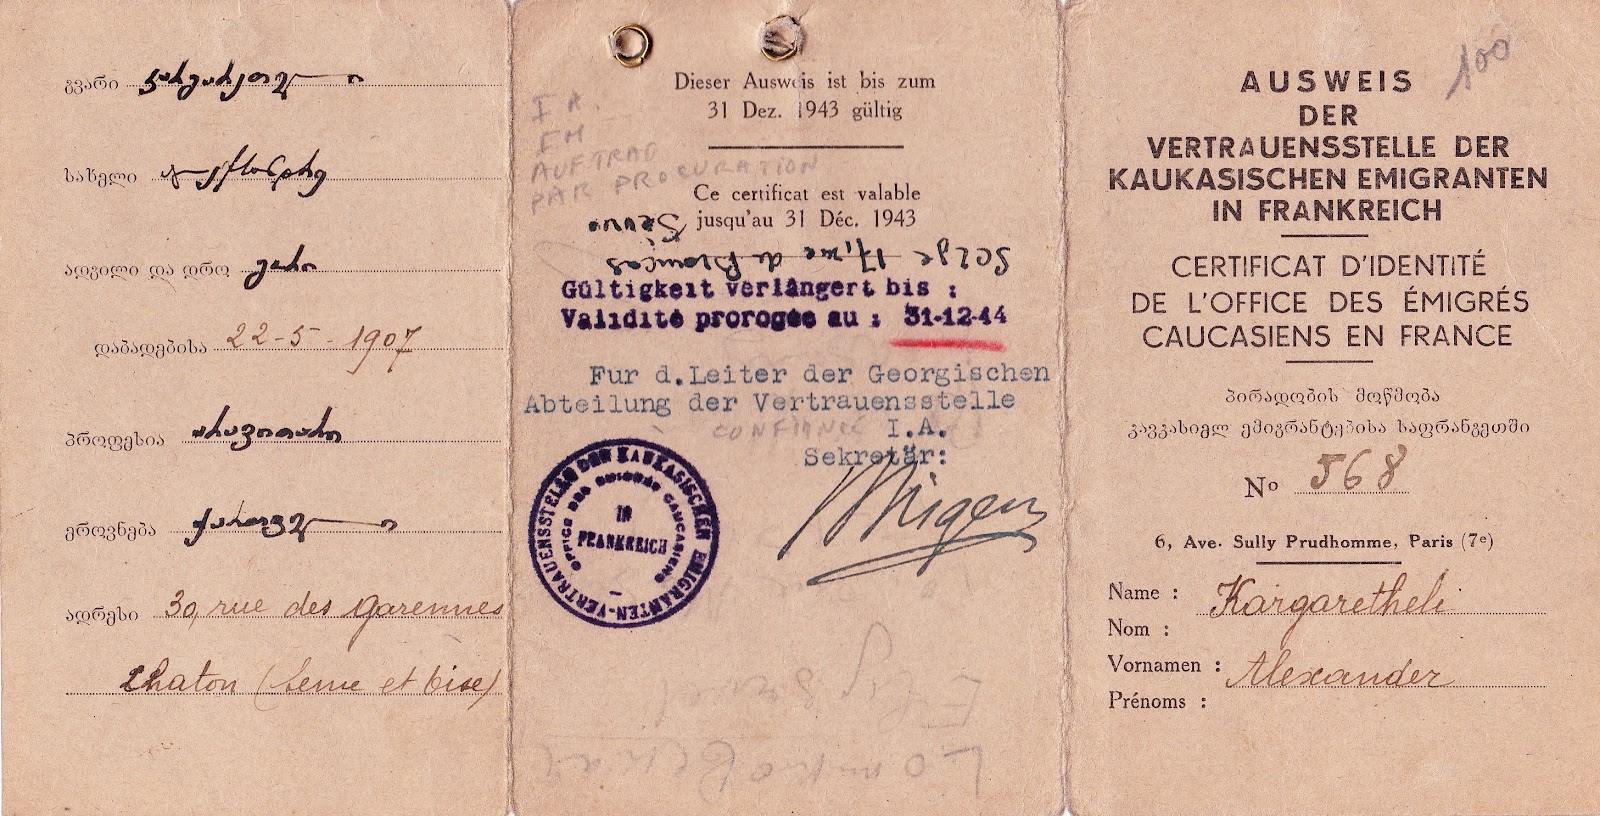 გვარი კარგარეთელი
სახელი ალექსანდრე
ადგილი და დრო გორი
დაბადებისა 22-5-1907
პროფესია
ეროვნება ქართველი
ადრესი 30, rue des Garennes
Chatou (Seine et Oise)
Dieser Ausweis ist bis zum
31 Dez. 1943 gültig
I A.
IM
AUFTRAG
PAR PROCURATION
Ce certificat est valable
jusqu'au 31 Déc. 1943
Serge 17, rue de
Gültigkeit verlängert bis :
Validité prorogée au : 31-12-44
Fur d.Leiter der Georgischen
Abteilung der Vertrauensstelle
CONFIANCE I.A.
Sekretär:
VERTRAUENSSTELLE DER KAUKASISCHEN EMIGRANTEN
OFFICE DES EMIGRÉS CAUCASIENS
IN
FRANKREICH
100
AUSWEIS
DER
VERTRAUENSSTELLE DER
KAUKASISCHEN EMIGRANTEN
IN FRANKREICH
CERTIFICAT D'IDENTITÉ
DE L'OFFICE DES ÉMIGRÉS
CAUCASIENS EN FRANCE
პირადობის მოწმობა
კავკასიელ ემიგრანტებისა საფრანგეთში
Nº 568
6, Ave. Sully Prudhomme, Paris (7e)
Name : Kargaretheli
Nom :
Vornamen : Alexander
Prénoms :